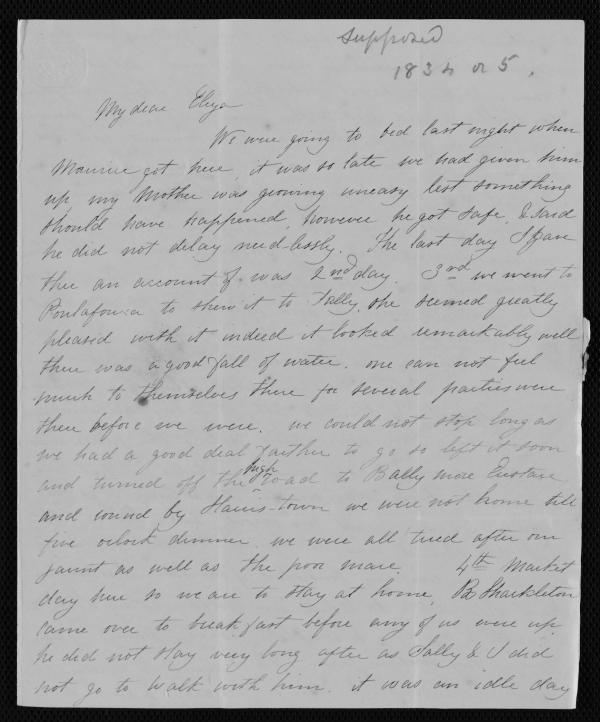 supposed
1834 or 5.
My dear Eliza
We were going to bed last night when
Maurice got here, it was so late we had given him
up, my Mother was growing uneasy lest something
should have happened, however he got safe, & said
he did not delay need-lessly. The last day I gave
thee an account of was 2nd day. 3rd we went to
Poulafouca to shew it to Sally, she seemed greatly
pleased with it indeed it looked remarkably well
there was a good fall of water. one can not feel
much to themselves there for several parties were
there before we were. we could not stop long as
we had a good deal farther to go so left it soon
and turned off the high road to Ballymore Eustace
and round by Harris-town we were not home till
five oclock dinner. we were all tired after our
jaunt as well as the poor mare. 4th Market
day here so we are to stay at home, Shackleton
came over to breakfast before any of us were up
he did not stay very long after as Sally & I did
not go to walk with him. it was an idle day